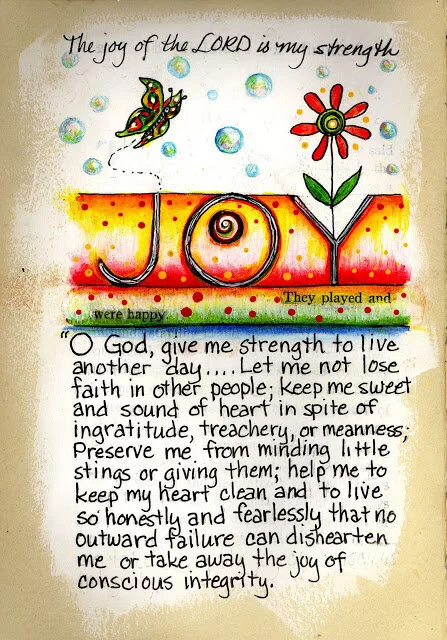 The joy of the LORD is my strength
JOY
They played and
were happy
"O God, give me strength to live
another day.... Let me not lose
faith in other people; keep me sweet
and sound of heart in spite of
ingratitude, treachery, or meanness;
Preserve me from minding little
stings or giving them; help me to
keep my heart clean and to live
so honestly and fearlessly that no
outward failure can dishearten
me or take away the joy of
conscious integrity.